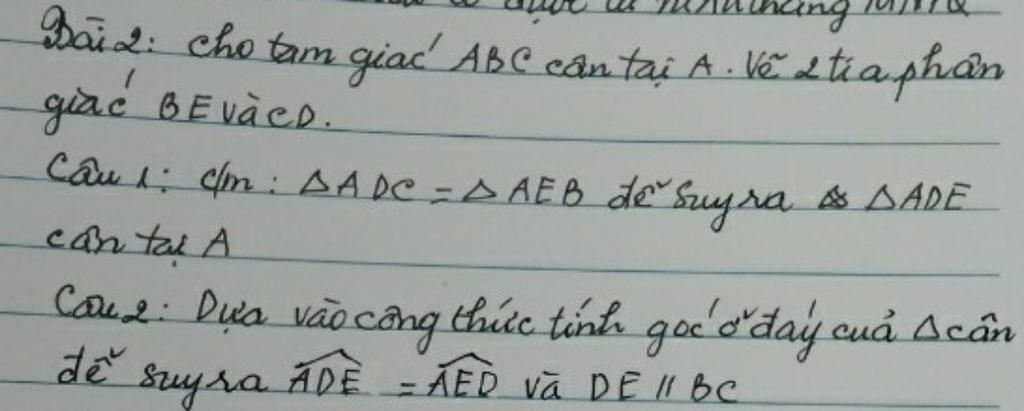 được
Bài 2: Cho tam giác ABC cân tại A. Vẽ 2 tia phân
giác BE và CD.
Câu 1: c/m : △ADC = △AEB để suy ra △ADE
cân tại A
Câu 2: Dựa vào công thức tính góc ở đáy của △ cân
để suy ra \widehat{ADE} = \widehat{AED} và DE // BC